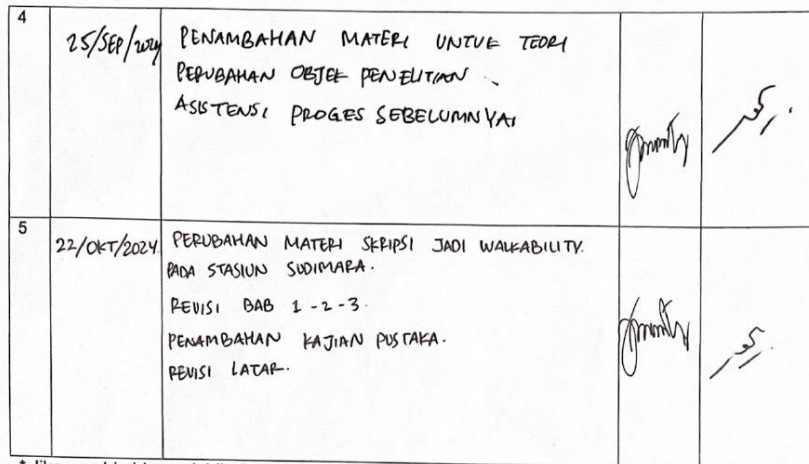 4
25/SEP/2024
PENAMBAHAN MATERI UNTUK TEORI
PERUBAHAN OBJEK PENELITIAN
ASISTENSI PROGES SEBELUMNYA
5
22/OKT/2024
PERUBAHAN MATERI SKRIPSI JADI WALKABILITY
PADA STASIUN SUDIMARA.
REVISI BAB 1-2-3.
PENAMBAHAN KAJIAN PUSTAKA.
REVISI LATAR.